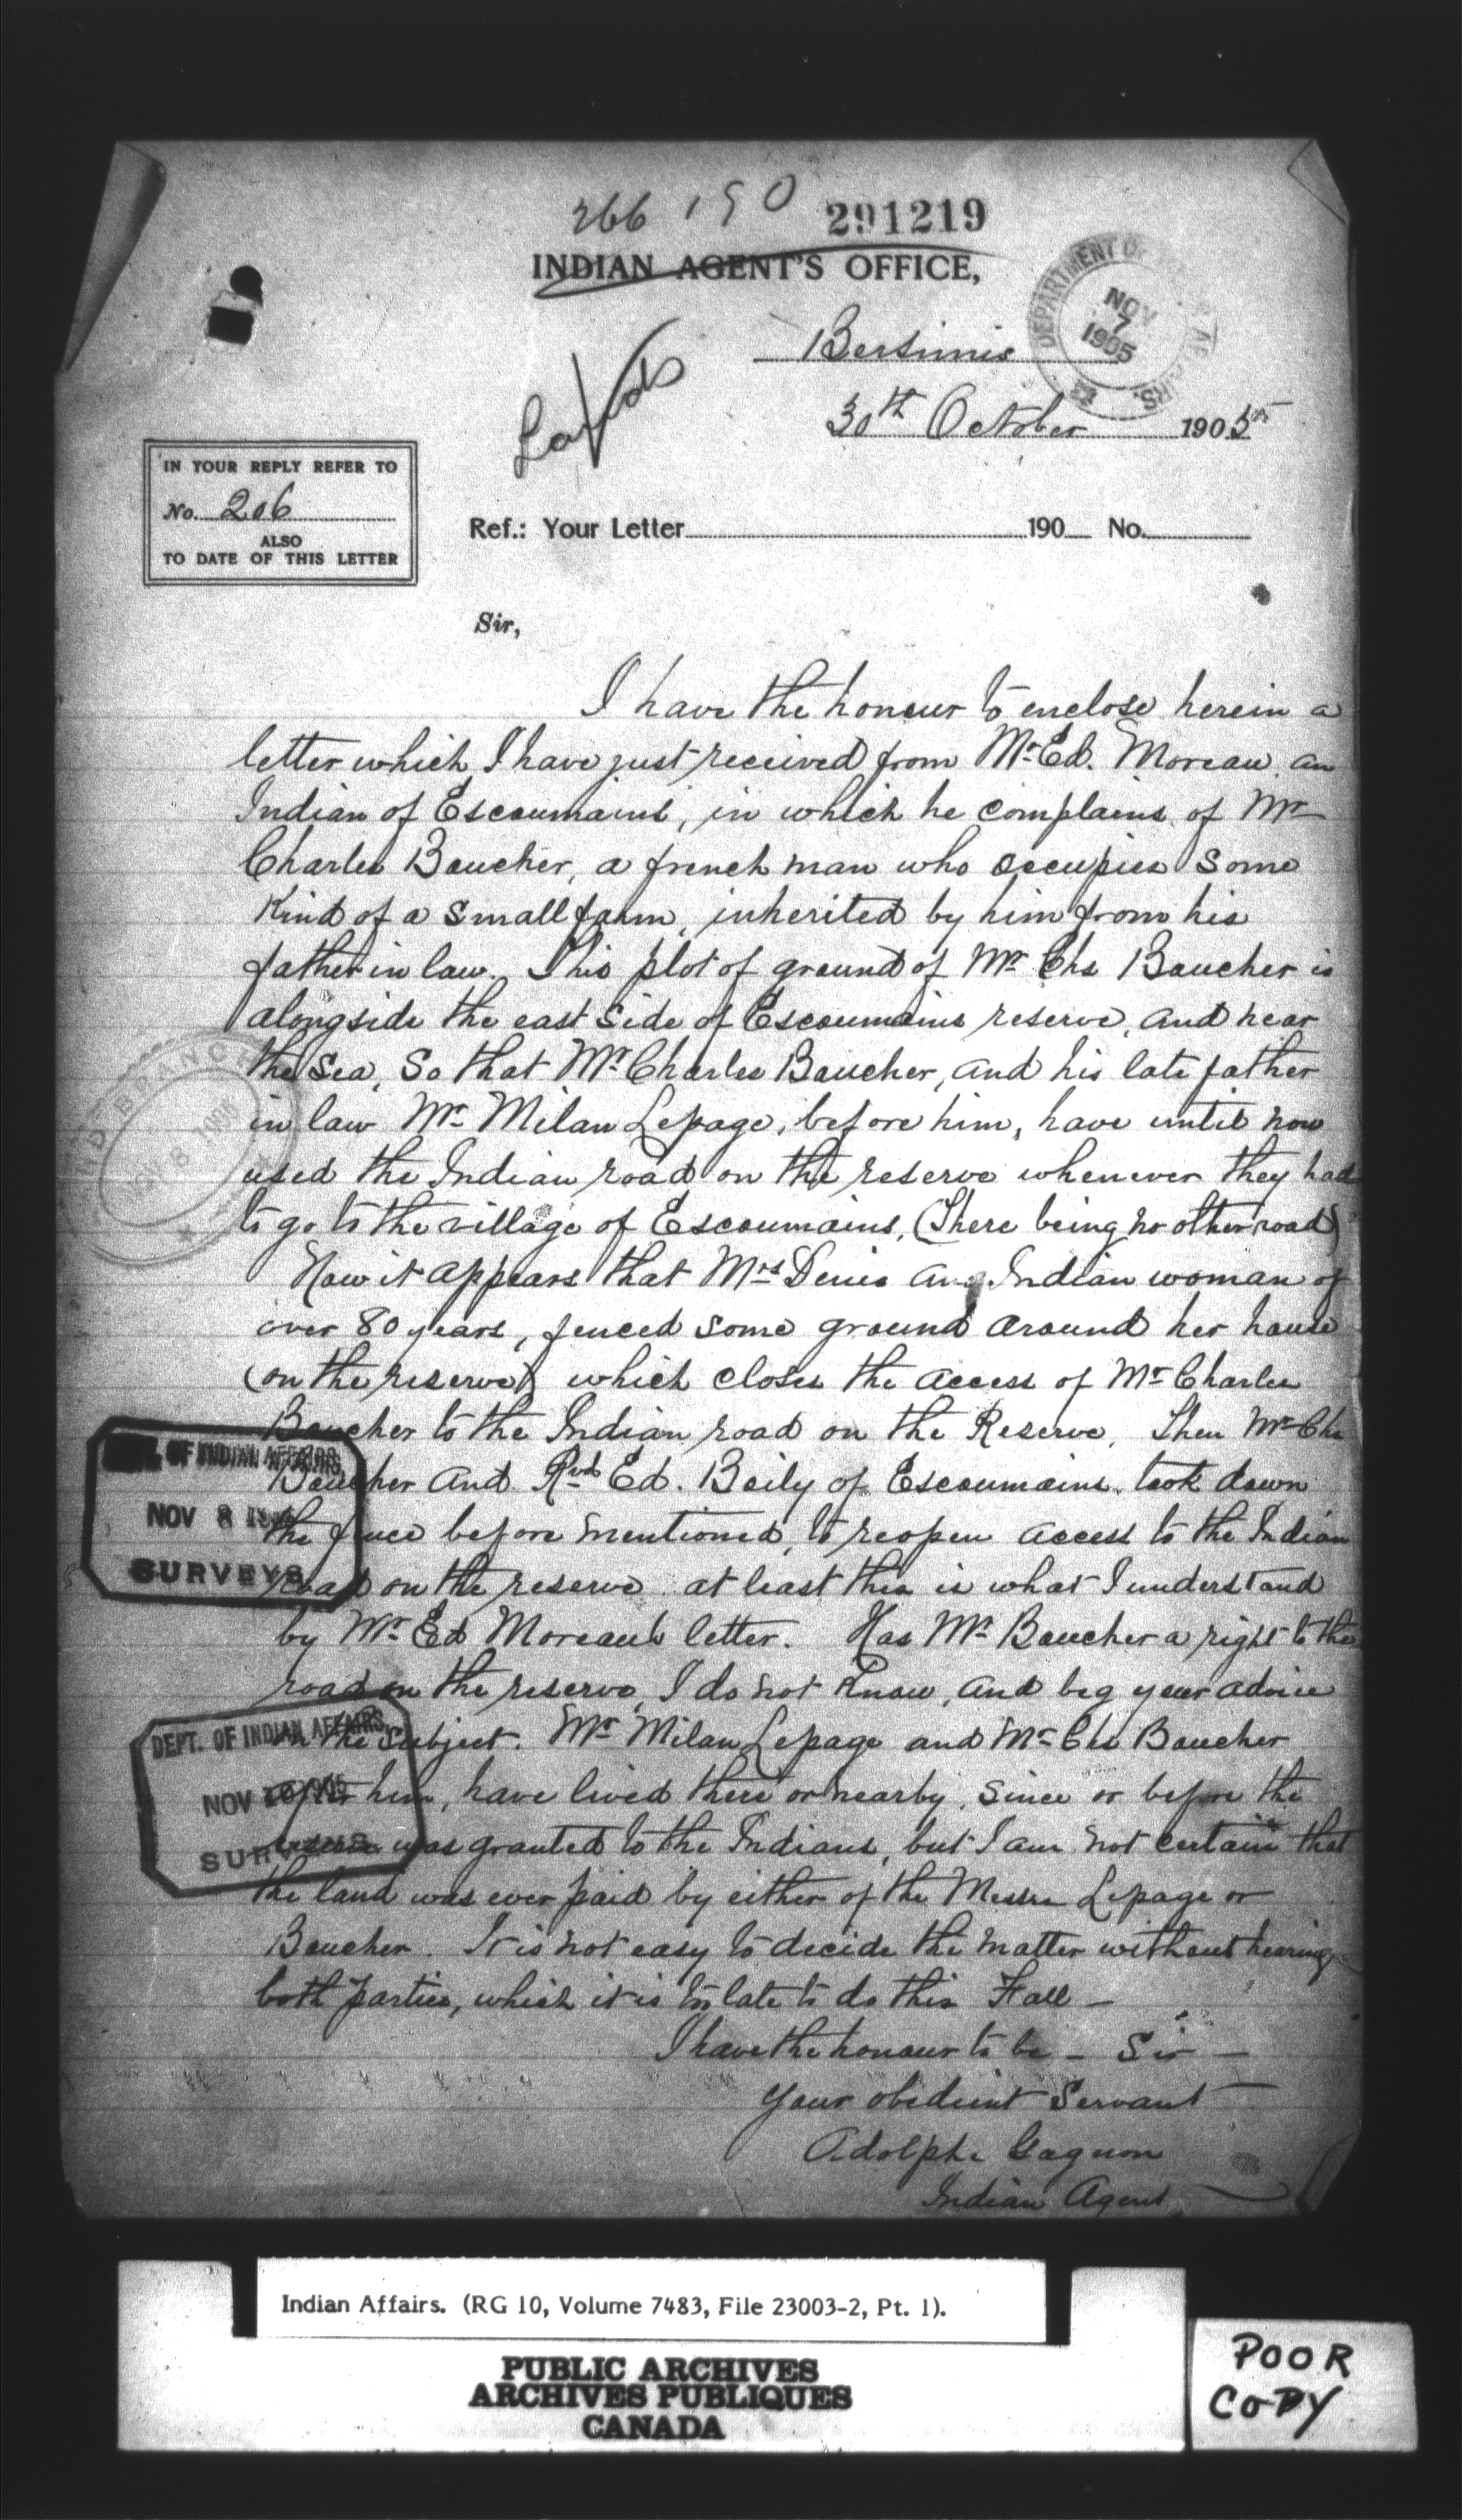 266 190 291219
INDIAN AGENT'S OFFICE,
Bersimis
DEPARTMENT OF AFFAIRS.
NOV
7
1905
Lands
30th October 1905
IN YOUR REPLY REFER TO
No. 206
ALSO
TO DATE OF THIS LETTER
Ref.: Your Letter 190 No.
Sir,
I have the honour to enclose herein a
letter which I have just received from Mr Ed. Moreau, an
Indian of Escoumains, in which he complains of Mr
Charles Boucher, a french man who occupies some
Kind of a small farm, inherited by him from his
father in law. This plot of ground of Mr Chs Boucher is
alongside the east side of Escoumains reserve, and near
the sea, So that Mr Charles Boucher, and his late father
in law Mr Milan Lepage, before him, have until now
used the Indian road on the reserve whenever they had
to go to the village of Escoumains, (There being no other road)
Now it appears that Mrs Denis an Indian woman of
over 80 years, fenced some ground around her house
(on the reserve) which closes the access of Mr Charles
Boucher to the Indian road on the Reserve. Then Mr Chs
Boucher and Rvd Ed. Boily of Escoumains, took down
the fence before mentioned, to reopen access to the Indian
road on the reserve at least this is what I understand
by Mr Ed Moreau's letter. Has Mr Boucher a right to the
road on the reserve, I do not Know, and beg your advice
on the subject. Mr Milan Lepage and Mr Chs Boucher
after him, have lived there or nearby, since or before the
reserve was granted to the Indians, but I am not certain that
the land was ever paid by either of the Messrs Lepage or
Boucher. It is not easy to decide the matter without hearing
both parties, which it is too late to do this Fall -
I have the honour to be - Sir -
Your obedient Servant
Adolphe Gagnon
Indian Agent
BRANCH
8
OF INDIAN AFFAIRS
NOV 8
SURVEYS
DEPT. OF INDIAN AFFAIRS
NOV 1905
SURVEYS
Indian Affairs. (RG 10, Volume 7483, File 23003-2, Pt. 1).
PUBLIC ARCHIVES
ARCHIVES PUBLIQUES
CANADA
POOR
COPY